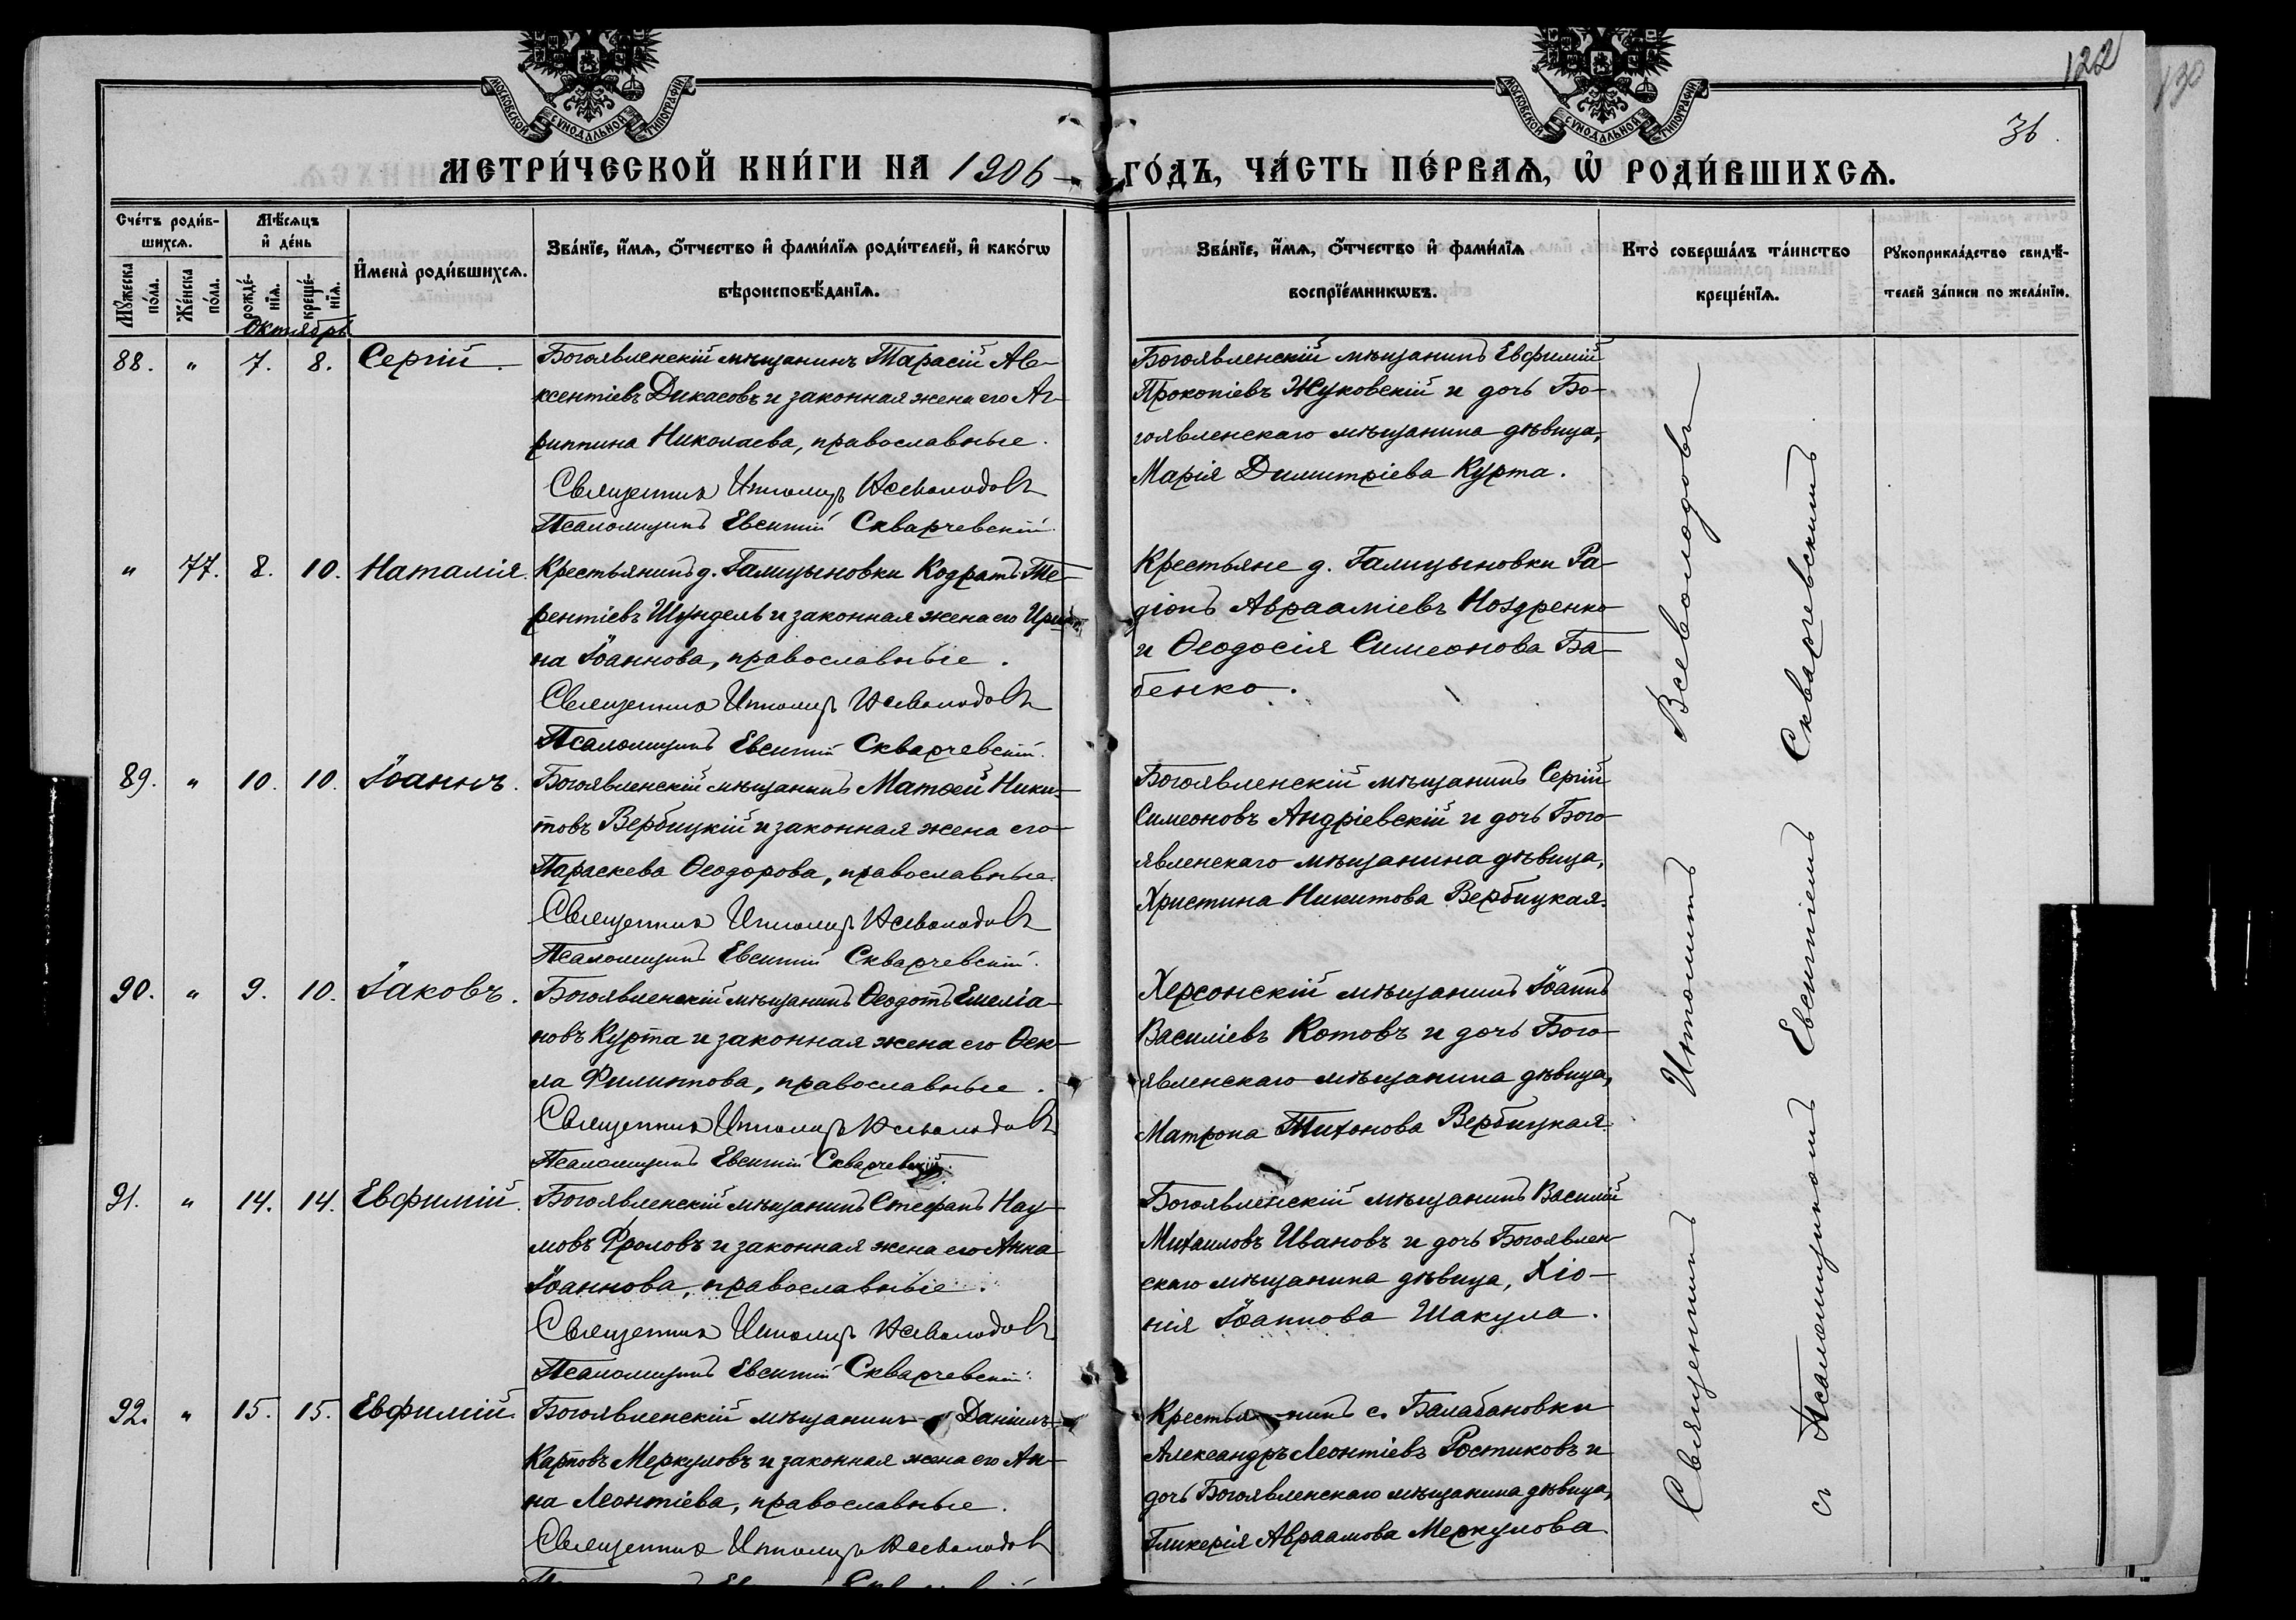 122
130
36.
МОСКОВСКОЙ СѴНОДАЛЬНОЙ ТИПОГРАФІИ
МОСКОВСКОЙ СѴНОДАЛЬНОЙ ТИПОГРАФІИ
МЕТРИ́ЧЕСКОЙ КНИ́ГИ НА 1906 ГО́ДЪ, ЧА́СТЬ ПЕ́РВАѦ, Ѡ҆ РОДИ́ВШИХСѦ.
Сче́тъ роди́в-
шихсѧ.
Мꙋ́жеска по́ла.
Же́нска по́ла.
Мѣ́сѧцъ
и҆ де́нь
рожде́-
нїѧ.
креще́-
нїѧ.
И҆мена̀ роди́вшихсѧ.
Зва́нїе, и҆́мѧ, ѻ҆́тчество и҆ фами́лїѧ роди́телей, и҆ како́гѡ
вѣроисповѣ́данїѧ.
Зва́нїе, и҆́мѧ, ѻ҆́тчество и҆ фами́лїѧ
воспрїе́мникѡвъ.
Кто̀ соверша́лъ та́инство
креще́нїѧ.
Рꙋкоприкла́дство свидѣ́-
телей за́писи по жела́нїю.
Октябрь
88. " 7. 8. Сергій.
Богоявленскій мѣщанинъ Тарасій Ав-
ксентіевъ Дикасовъ и законная жена его Аг-
риппина Николаева, православные.
Священникъ Ипполитъ Всеволодовъ
Псаломщикъ Евсигній Скварчевскій.
Богоявленскій мѣщанинъ Евфимій
Прокопіевъ Жуковскій и дочь Бо-
гоявленскаго мѣщанина дѣвица,
Марія Димитріева Курта.
" 77. 8. 10. Наталія.
Крестьянинъ д. Галицыновки Кодратъ Те-
рентіевъ Шундель и законная жена его Ири-
на Іоаннова, православные.
Священникъ Ипполитъ Всеволодовъ
Псаломщикъ Евсигній Скварчевскій.
Крестьяне д. Галицыновки Ра-
діонъ Авраамiевъ Ноздренко
и Ѳеодосія Симеонова Ба-
бенко.
89. " 10. 10. Іоаннъ.
Богоявленскій мѣщанинъ Матѳей Ники-
товъ Вербицкій и законная жена его
Параскева Ѳеодорова, православные.
Священникъ Ипполитъ Всеволодовъ
Псаломщикъ Евсигній Скварчевскій.
Богоявленскій мѣщанинъ Сергій
Симеоновъ Андріевскій и дочь Бого-
явленскаго мѣщанина дѣвица,
Христина Никитова Вербицкая.
90. " 9. 10. Іаковъ.
Богоявленскій мѣщанинъ Ѳеодотъ Емеліа-
новъ Курта и законная жена его Ѳек-
ла Филиппова, православные.
Священникъ Ипполитъ Всеволодовъ
Псаломщикъ Евсигній Скварчевскій.
Херсонскій мѣщанинъ Іоаннъ
Василіевъ Котовъ и дочь Бого-
явленскаго мѣщанина дѣвица,
Матрона Тихонова Вербицкая.
91. " 14. 14. Евфимій.
Богоявленскій мѣщанинъ Стефанъ Нау-
мовъ Фроловъ и законная жена его Анна
Іоаннова, православные.
Священникъ Ипполитъ Всеволодовъ
Псаломщикъ Евсигній Скварчевскій.
Богоявленскій мѣщанинъ Василій
Михаиловъ Ивановъ и дочь Богоявлен-
скаго мѣщанина дѣвица, Хіо-
нія Іоаннова Шакула.
92. " 15. 15. Евфимій.
Богоявленскій мѣщанинъ Даніилъ
Карповъ Меркуловъ и законная жена его Ан-
на Леонтіева, православные.
Священникъ Ипполитъ Всеволодовъ
Крестьянинъ с. Балабановки
Александръ Леонтіевъ Ростиковъ и
дочь Богоявленскаго мѣщанина дѣвица,
Гликерія Авраамова Меркулова.
Священникъ Ипполитъ Всеволодовъ
съ Псаломщикомъ Евсигніемъ Скварчевскимъ.